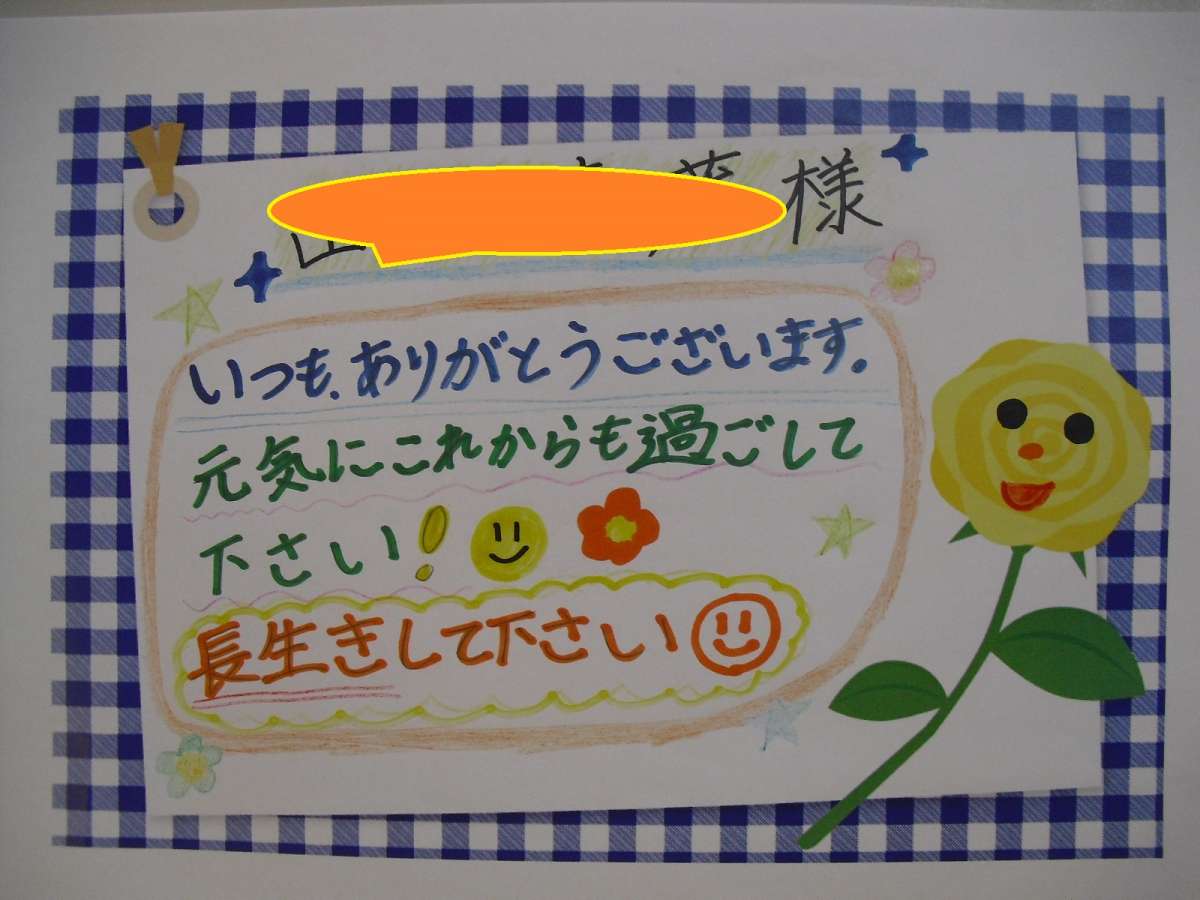 様
いつも、ありがとうございます。
元気にこれからも過ごして
下さい!
長生きして下さい